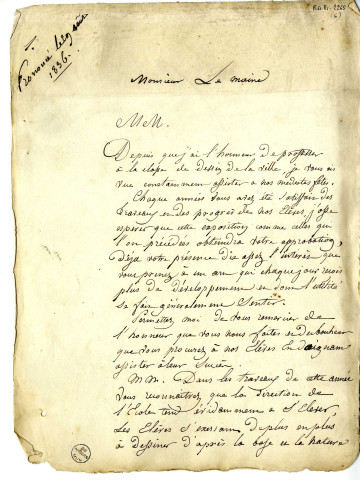 Prononcé le 29 août
1836.
Monsieur Le maire
MM.
Depuis que j'ai l'honneur de professer
à la classe de dessin de la ville, je vous ai
vue constamment assister a nos modestes fêtes.
Chaque années vous avez été satisfais des
travaux et des progrès de nos Elèves, j'ose
esperer que cette exposition comme celles qui
l'on précédés obtiendra votre approbation,
Déja votre présence dis assez l'intérêt que
vous prenez à un art qui chaque jour reçois
plus de développement et dont l'utilité
se fais généralement sentir.
Permettez moi de vous remercier de
l'honneur que vous nous faites et du bonheur
que vous procurez à nos Elèves En daignant
assister à leur succès.
MM. Dans les travaux de cette année
vous reconnaîtrez que la direction de
l'Ecole tend évidemment a s'Elever,
Les Elèves s'exercent de plus en plus
à dessiner d'après la bosse et la nature